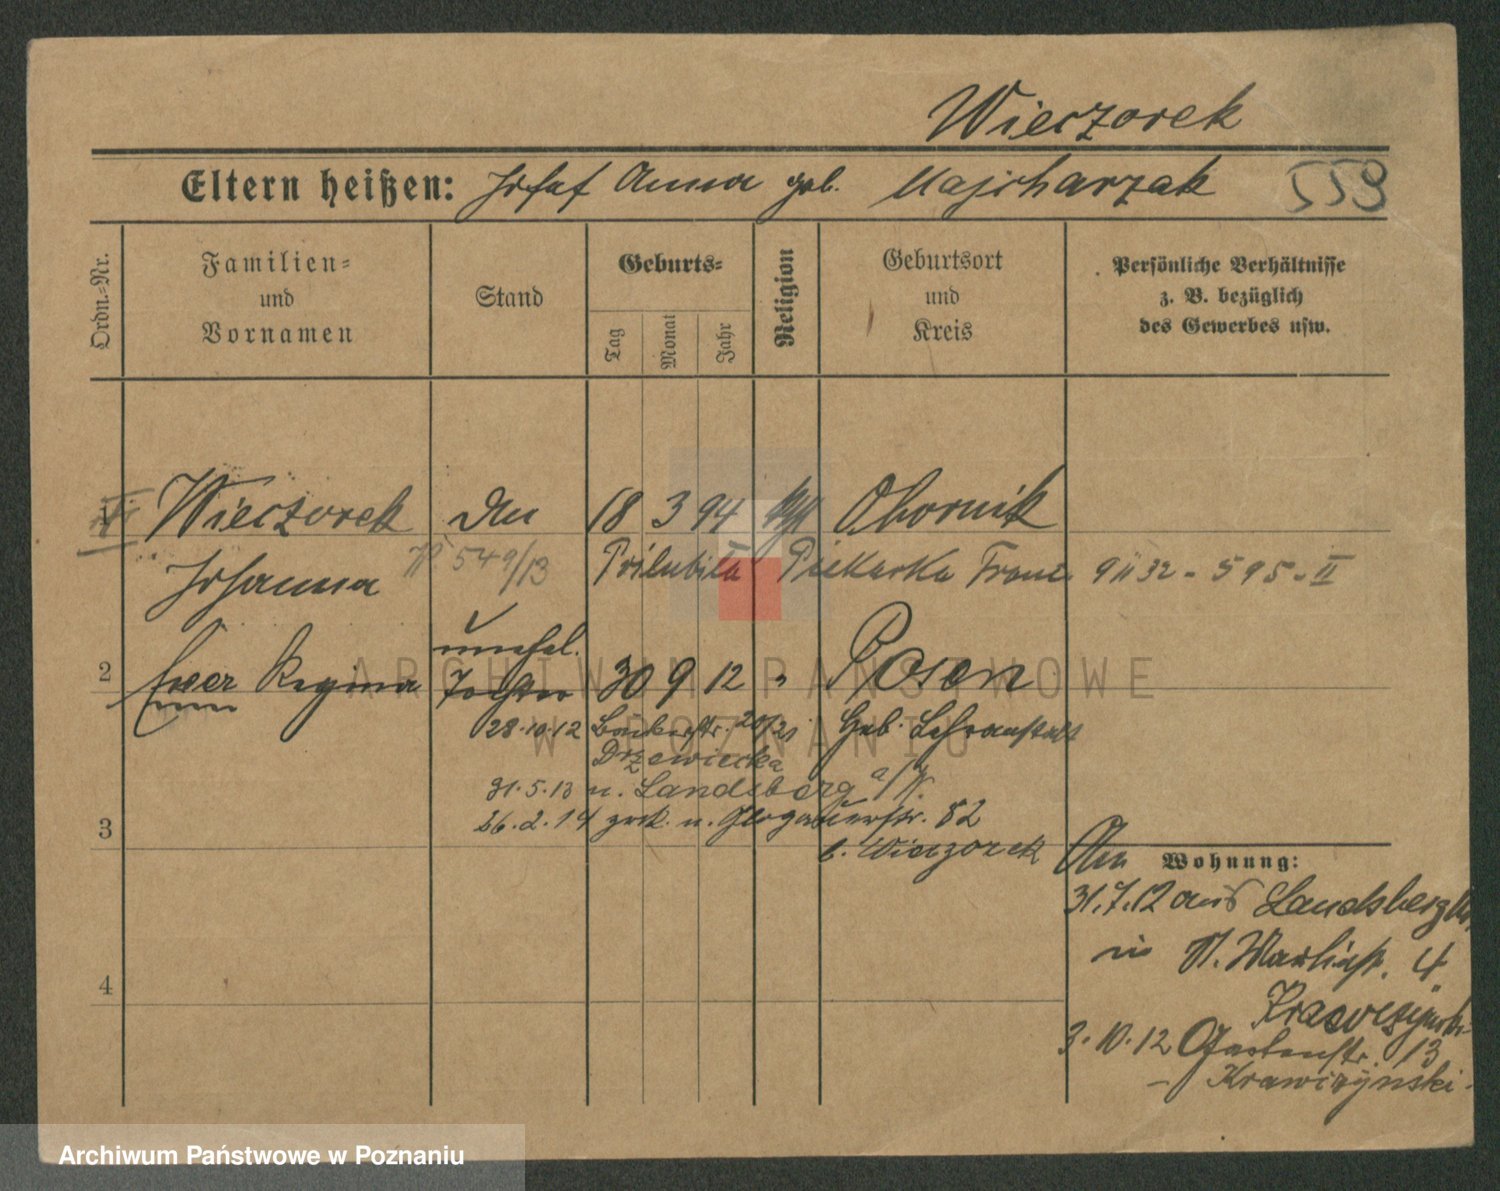 Wieczorek
Eltern heißen: Josef Anna geb. Majcharzak 559
Ordn.-Nr.
Familien-
und
Vornamen
Stand
Geburts-
Tag
Monat
Jahr
Religion
Geburtsort
und
Kreis
Persönliche Verhältnisse
z. B. bezüglich
des Gewerbes usw.
1 Wieczorek 18 3 94 Obornik
Johanna 549/13 Piekarka Franz 9 II 32 - 595 - II
unehel.
2 Regina Tochter 30 9 12 " Posen
28.10.12 Bäckerstr. 20/21 Geb. Lehranstalt
Drzewiecka
31.5.13 n. Landsberg a/W.
3 26.2.14 zrck. n. Glogauerstr. 82
b. Wieczorek
Wohnung:
31.7.12 aus Landsberg
in St. Martinstr. 4
Krawczynski
4
3.10.12 Gartenstr. 13
Krawczynski
ARCHIWUM PAŃSTWOWE
W POZNANIU
Archiwum Państwowe w Poznaniu